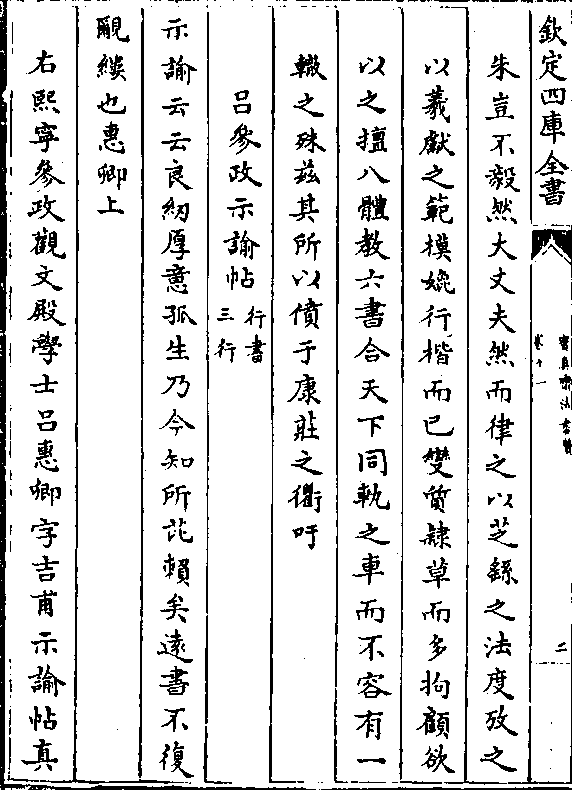 欽定四庫全書
寶真齋法書贊
卷十一
二
朱豈不毅然大丈夫然而律之以芝繇之法度攷之
以羲獻之範模媲行楷而已變質隸草而多拘顧欲
以之擅八體教六書合天下同軌之車而不容有一
轍之殊兹其所以僨于康莊之衢吁
呂參政示諭帖
行書
三行
示諭云云良紉厚意孤生乃今知所芘賴矣遠書不復
覼縷也惠卿上
右熙寧參政觀文殿學士呂惠卿字吉甫示諭帖真